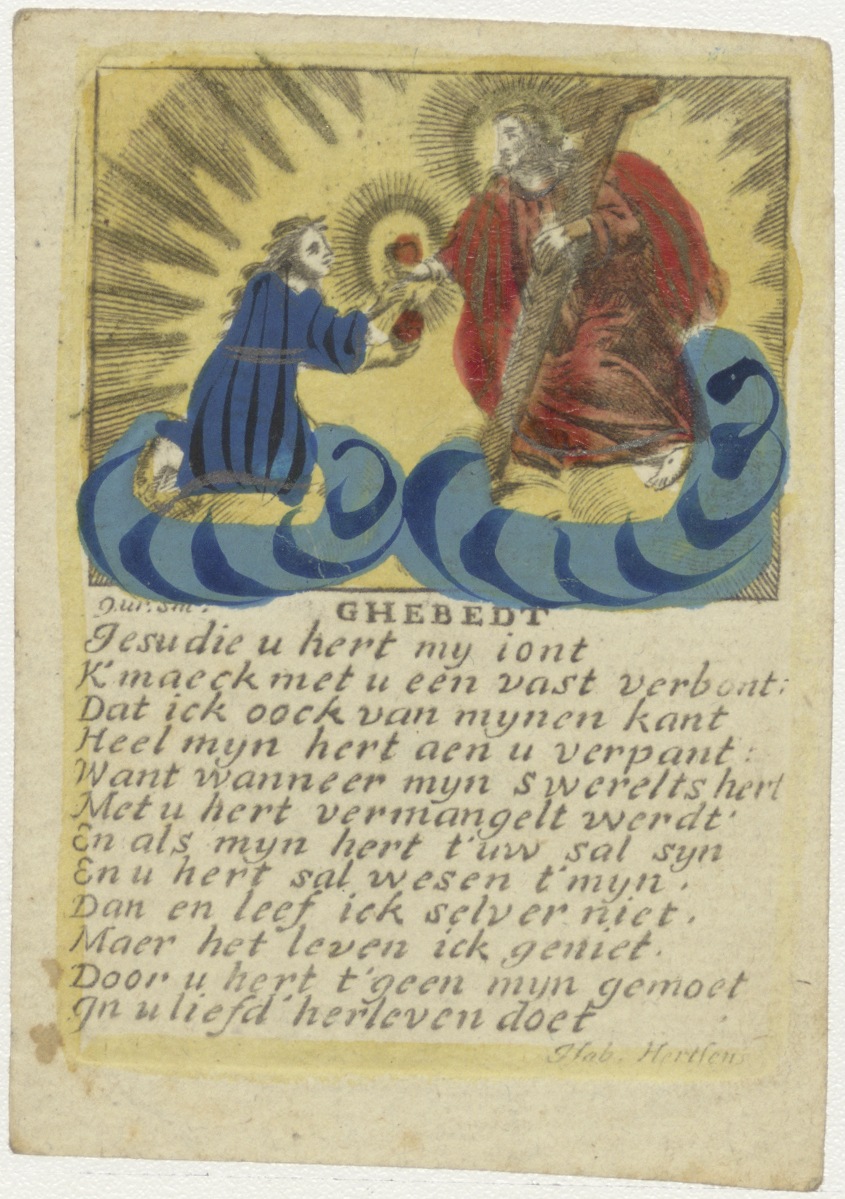 GHEBEDT
Jesu die u hert my iont
K'maeck met u een vast verbont:
Dat ick oock van mynen kant
Heel myn hert aen u verpant:
Want wanneer myn swerelts hert
Met u hert vermangelt werdt
En als myn hert t'uw sal syn
En u hert sal wesen t'myn.
Dan en leef ick selver niet.
Maer het leven ick geniet.
Door u hert t'geen myn gemoet
Jn u liefd' herleven doet
Hab. Hertsens